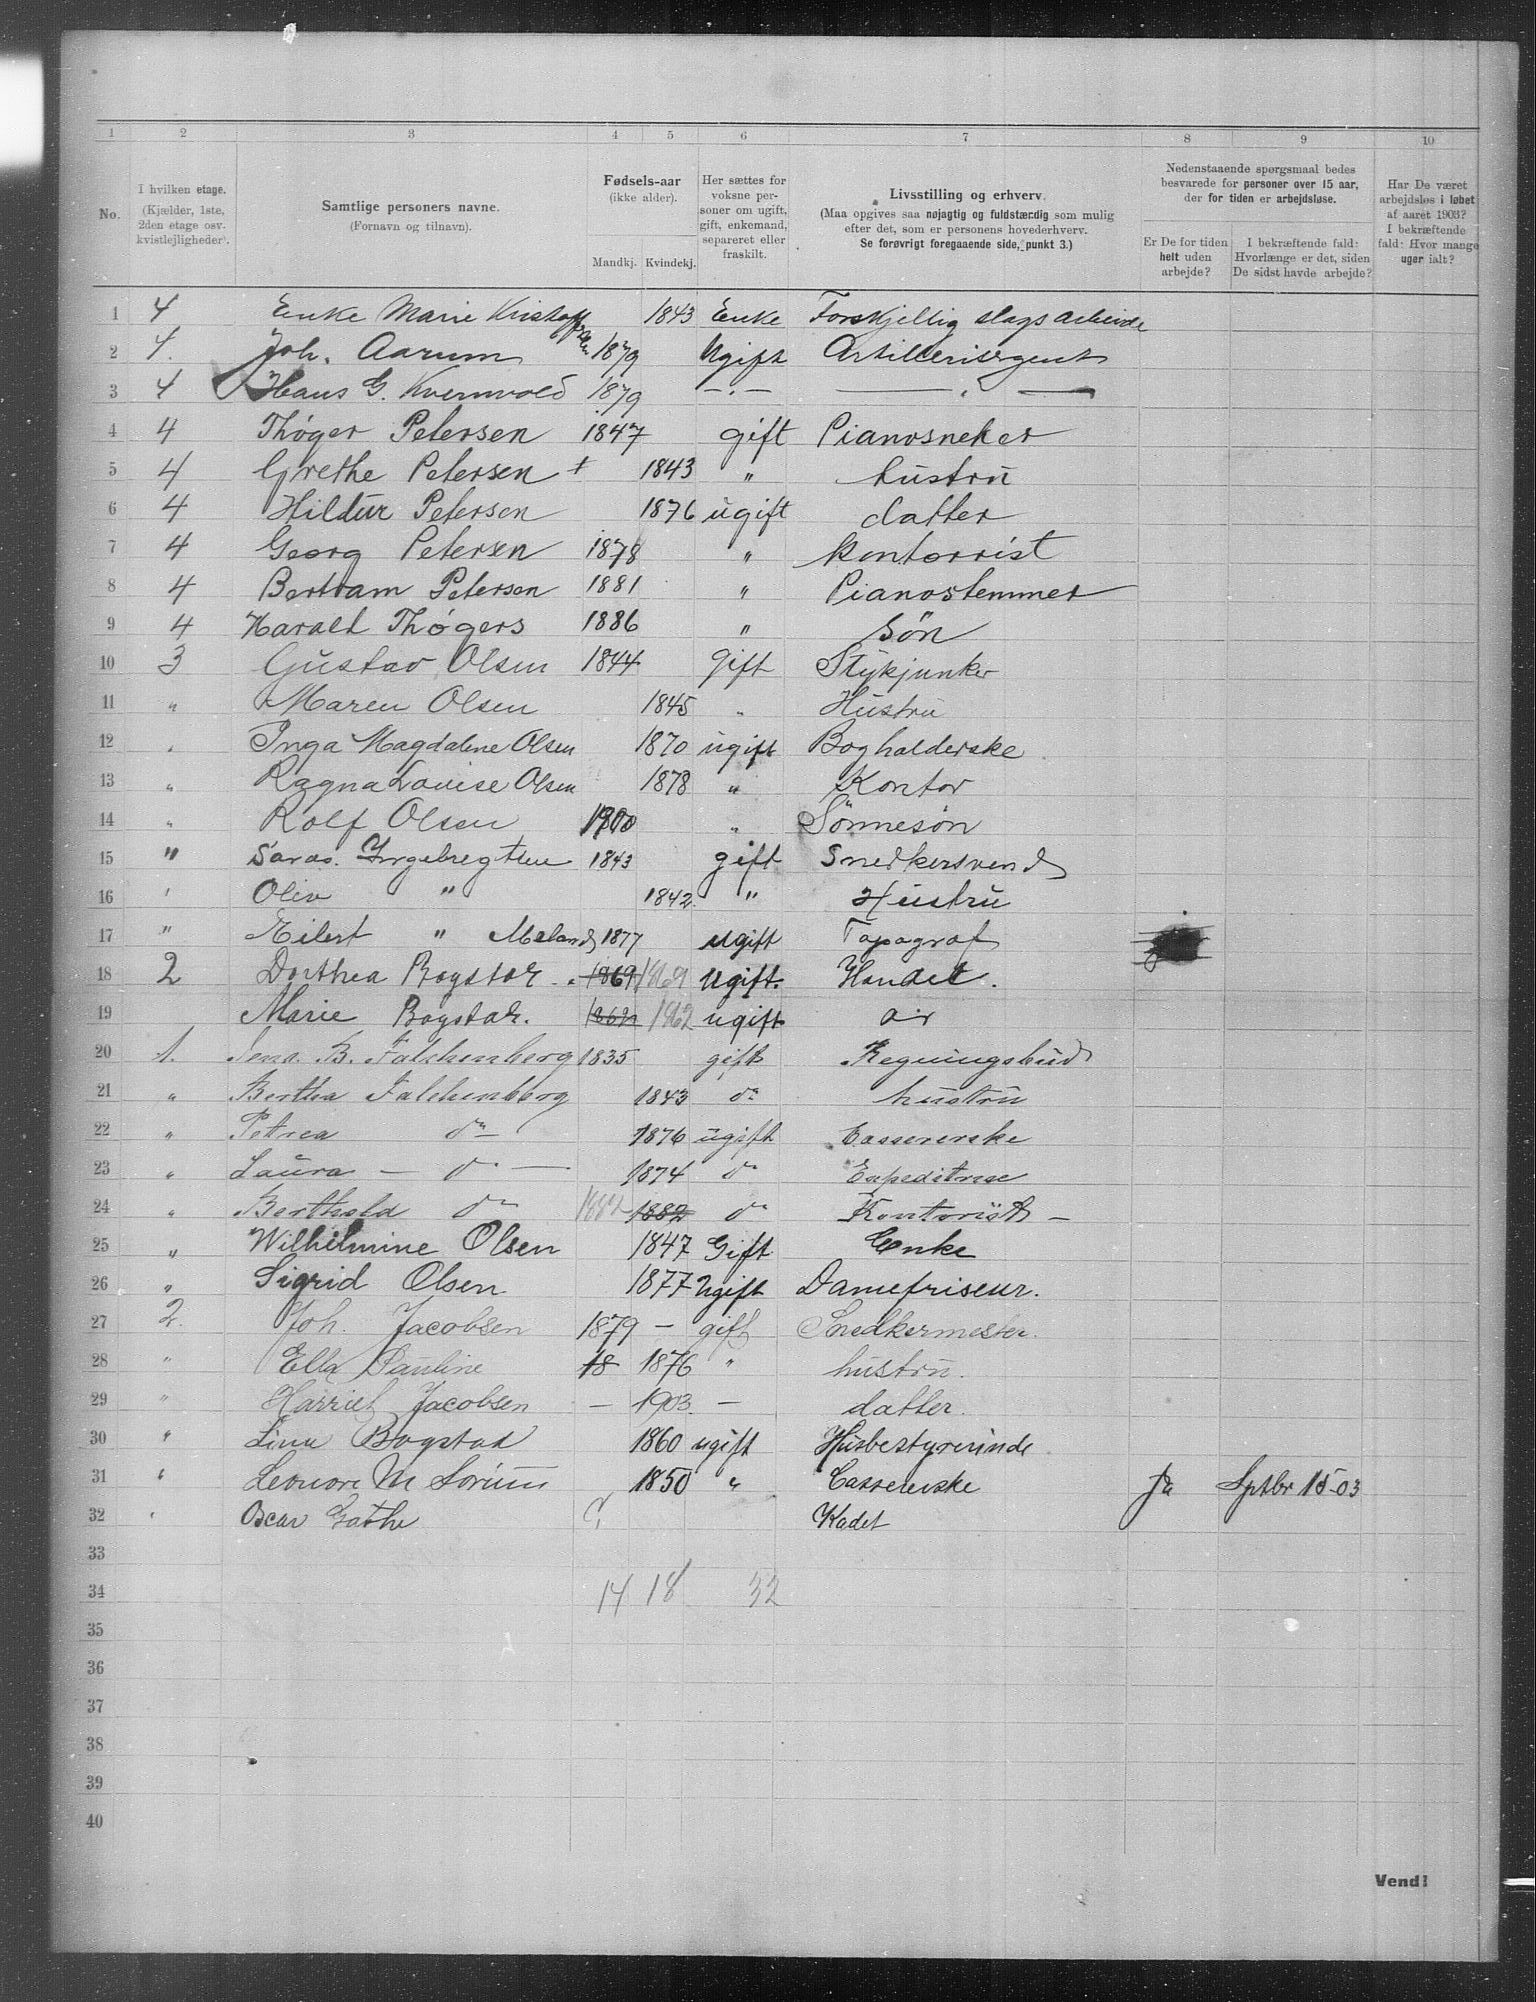 1 2 3 4 5 6 7 8 9 10
No.
I hvilken etage.
(Kjælder, 1ste,
2den etage osv.
kvistleiligheder).
Samtlige personers navne.
(Fornavn og tilnavn).
Fødsels-aar
(ikke alder).
Mandkj. Kvindekj.
Her sættes for
voksne per-
soner om ugift,
gift, enkemand,
separeret eller
fraskilt.
Livsstilling og erhverv.
(Maa opgives saa nøjagtig og fuldstændig som mulig
efter det, som er personens hovederhverv.
Se forøvrigt foregaaende side, punkt 3.)
Nedenstaaende spørgsmaal bedes
besvarede for personer over 15 aar,
der for tiden er arbejdsløse.
Er De for tiden
helt uden
arbejde?
I bekræftende fald:
Hvorlænge er det, siden
De sidst havde arbejde?
Har De været
arbejdsløs i løbet
af aaret 1903?
I bekræftende
fald: Hvor mange
uger ialt?
1 4 Enke Marie Kristoffersen 1843 Enke Forskjellig slags arbeide
2 4. Joh. Aarum 1879 Ugift Artillerisergent
3 4 Hans G. Kvernvold 1879 —"— — " —
4 4 Thøger Petersen 1847 gift Pianosneker
5 4 Grethe Petersen + 1843 " hustru
6 4 Hildur Petersen 1876 ugift datter
7 4 Georg Petersen 1878 " kontorrist
8 4 Bertram Petersen 1881 " Pianostemmer
9 4 Harald Thøgers 1886 " søn
10 3 Gustav Olsen 1844 gift Stykjunker
11 " Maren Olsen 1845 " Hustru
12 " Inga Magdalene Olsen 1870 ugift Bogholderske
13 " Ragna Lovise Olsen 1878 " Kontor
14 " Rolf Olsen 1900 " Sønnesøn
15 " Ingebregtsen 1843 gift Snedkersvend
16 " Oliv " 1842 " Hustru
17 " Eilert " Meland 1877 ugift Topograf
18 2 Dorthea Bogstad 1869 1869 Ugift. Handel.
19 Marie Bogstad. 1862 1862 ugift do
20 1. Jens. B. Falchenberg 1835 gift Regningsbud
21 " Bertha Falchenberg 1843 do hustru
22 " Petrea do 1876 ugift Cassererske
23 " Laura — do — 1874 do Expeditrise
24 " Berthold do 1882 1882 do Kontorist —
25 " Wilhelmine Olsen 1847 Gift Enke
26 " Sigrid Olsen 1877 Ugift Damefriseur.
27 2. Joh. Jacobsen 1879 — gift Snedkermester.
28 " Ella Pauline 18 1876 " hustru.
29 " Harriet Jacobsen — 1903. — datter.
30 " Lina Bogstad 1860 ugift Husbestyrerinde
31 " Leonore M Sorium 1850 " Cassererske ja Sptbr 15-03
32 " Oscar Gathe Kadet
33
34 14 18 32
35
36
37
38
39
40
Vend!